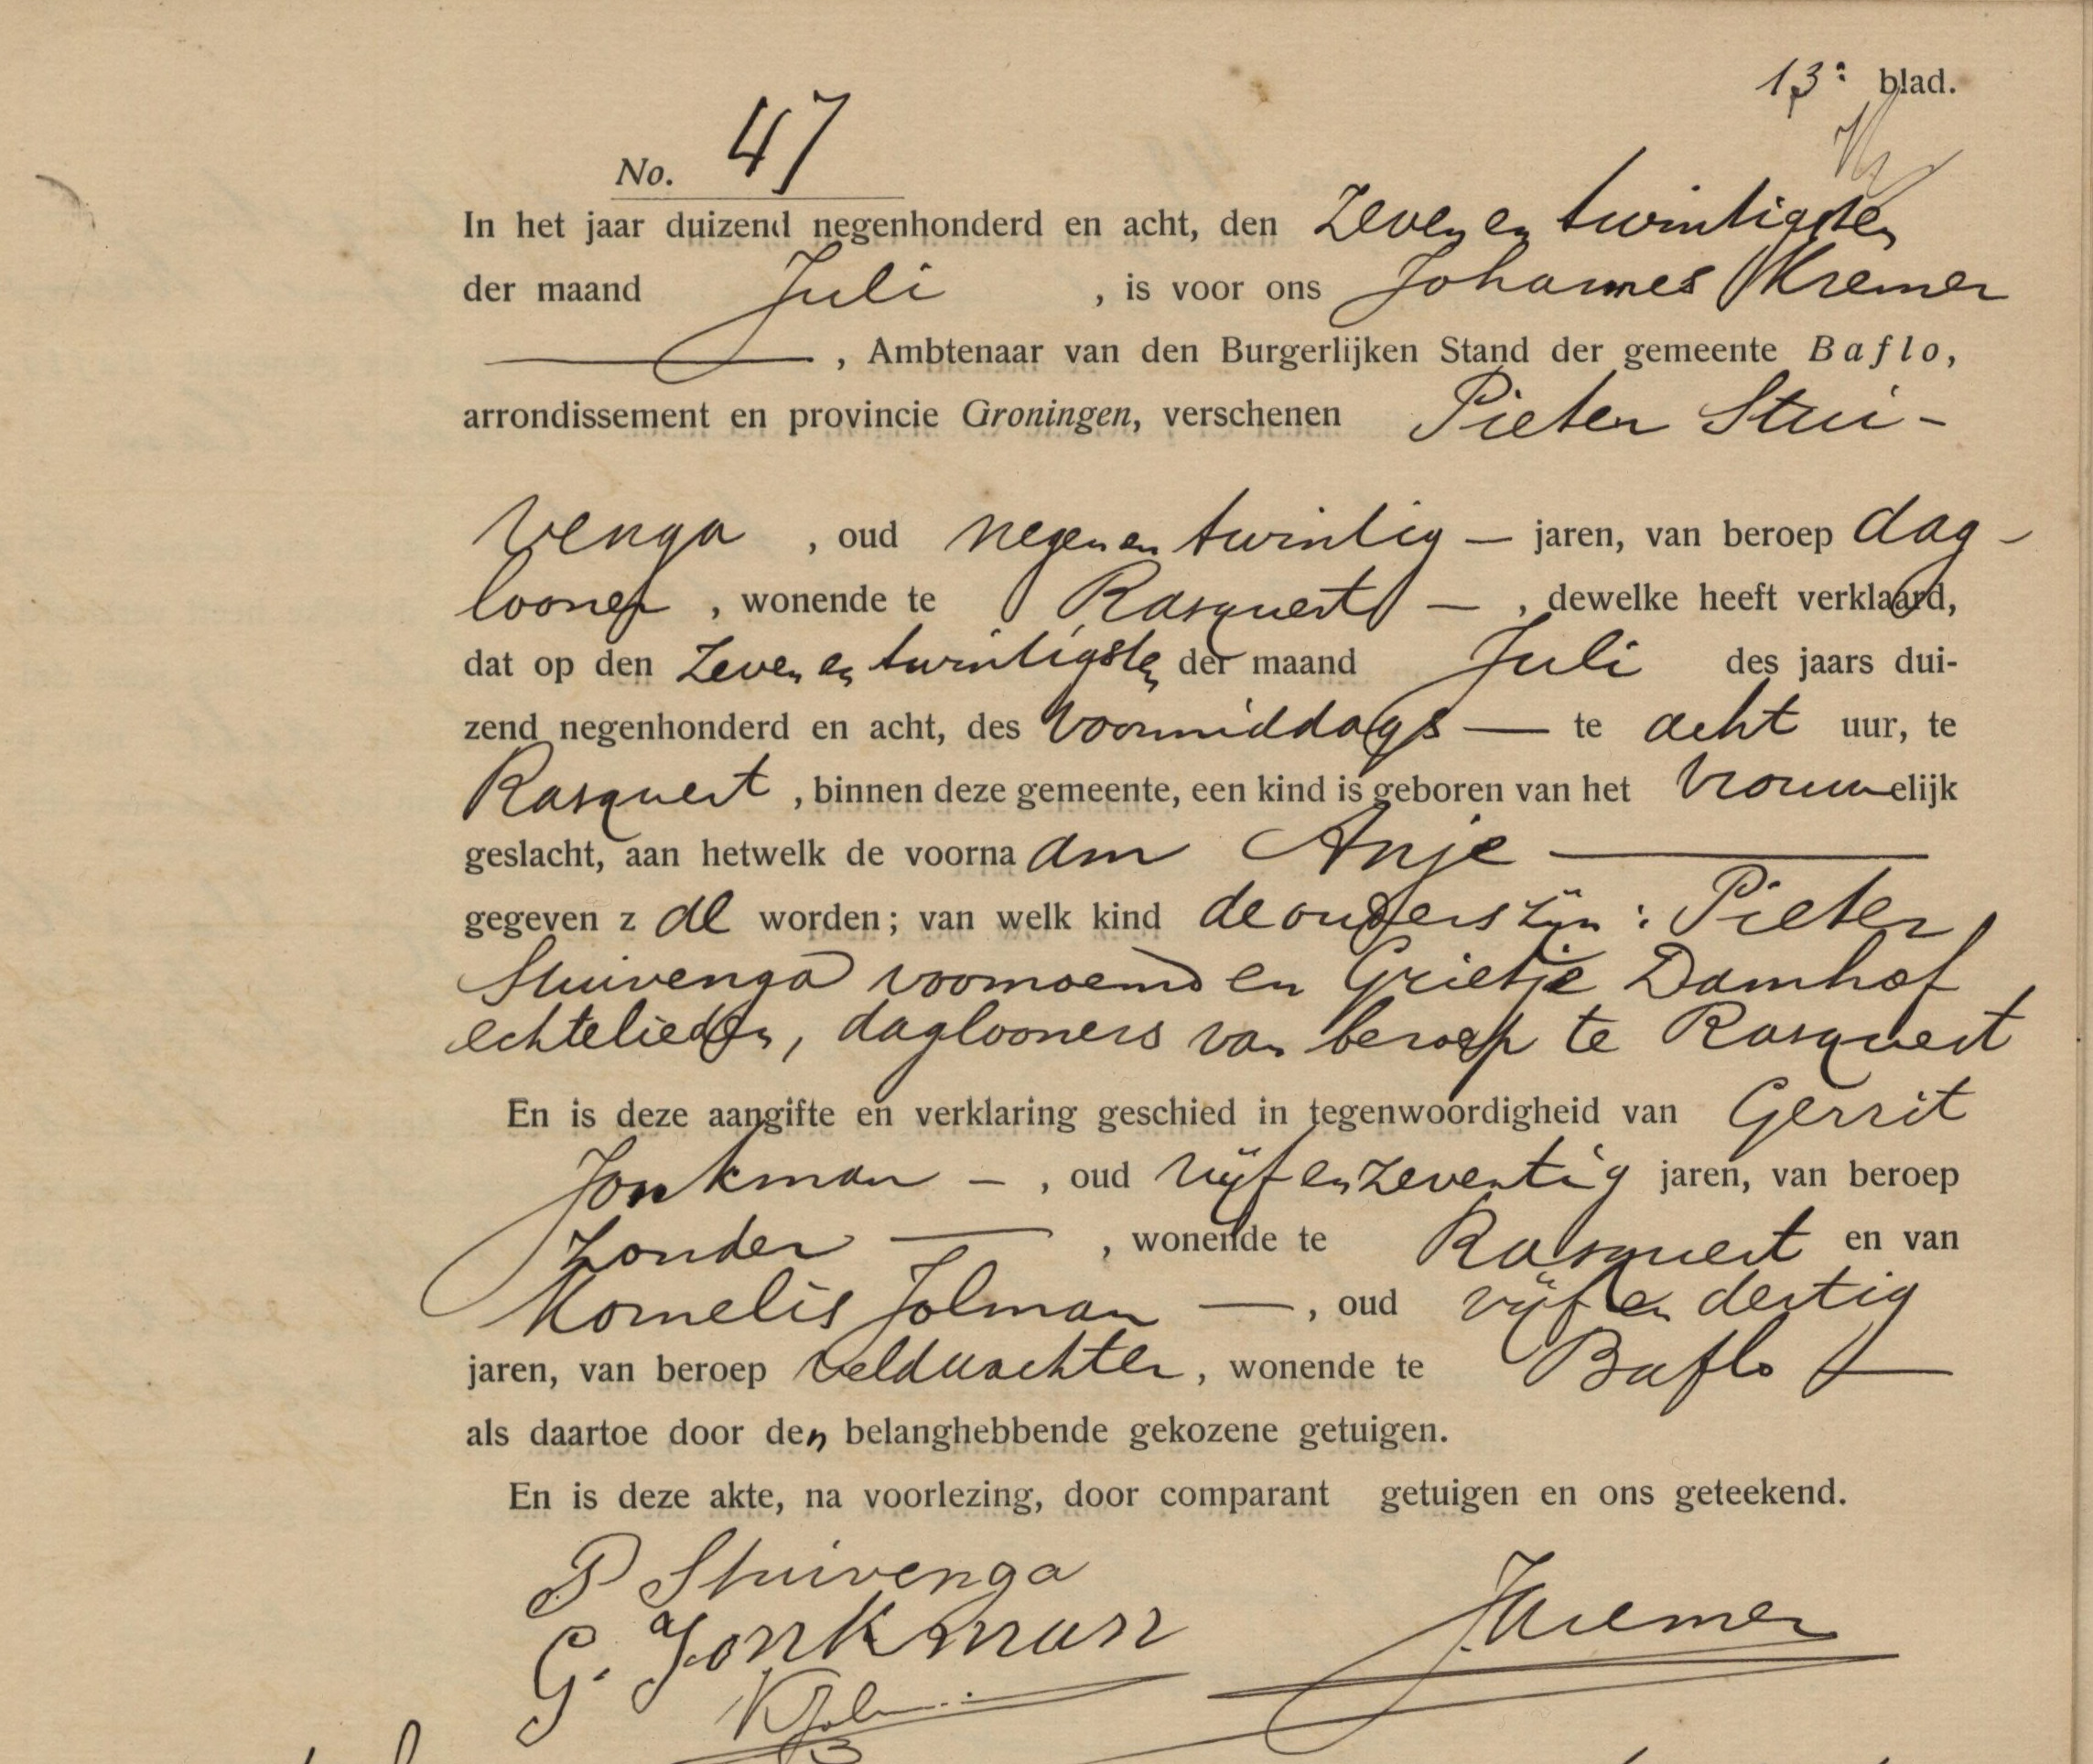 13e blad.
No. 47
In het jaar duizend negenhonderd en acht, den Zeven en twintigsten
der maand Juli , is voor ons Johannes Kremer
, Ambtenaar van den Burgerlijken Stand der gemeente Baflo,
arrondissement en provincie Groningen, verschenen Pieter Stui-
venga , oud negen en twintig — jaren, van beroep dag-
looner , wonende te Rasquert — , dewelke heeft verklaard,
dat op den Zeven en twintigsten der maand Juli des jaars dui-
zend negenhonderd en acht, des Voormiddags — te acht uur, te
Rasquert , binnen deze gemeente, een kind is geboren van het Vrouwelijk
geslacht, aan hetwelk de voornaam Anje —
gegeven zal worden; van welk kind de ouders zijn : Pieter
Stuivenga voornoemd en Grietje Damhof
echtelieden, daglooners van beroep te Rasquert
En is deze aangifte en verklaring geschied in tegenwoordigheid van Gerrit
Jonkman — , oud vijf en zeventig jaren, van beroep
Zonder — , wonende te Rasquert en van
Kornelis Jolman — , oud vijf en dertig
jaren, van beroep veldwachter , wonende te Baflo —
als daartoe door den belanghebbende gekozene getuigen.
En is deze akte, na voorlezing, door comparant getuigen en ons geteekend.
P Stuivenga
G. Jonkman JKremer
K Jolman